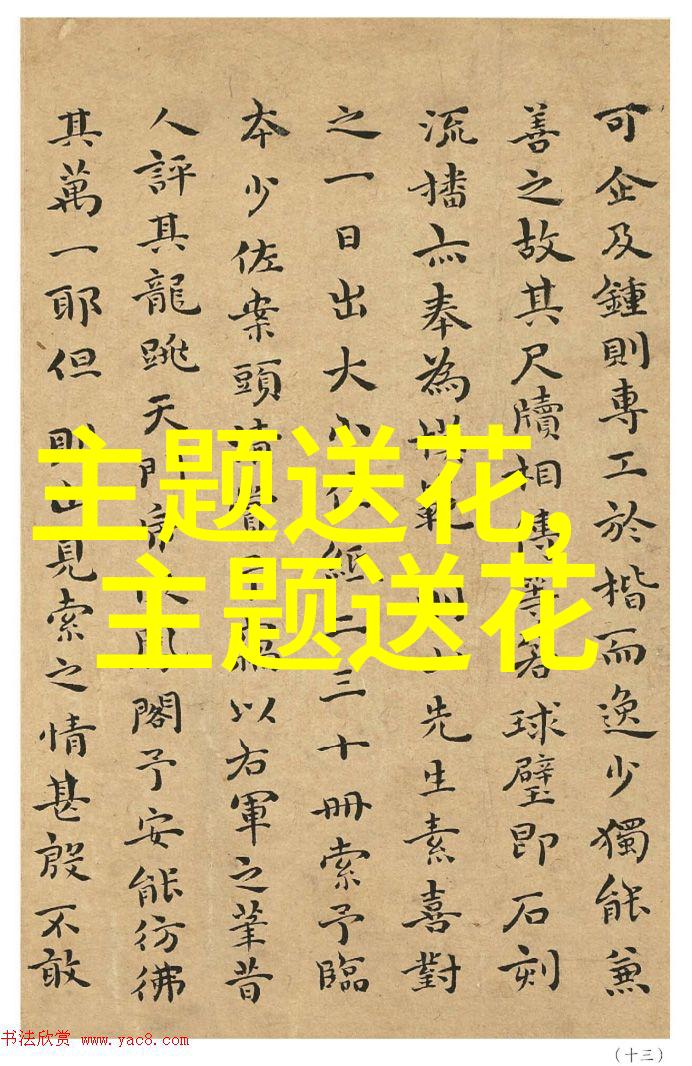 可企及鍾則專工於楷而逸少獨能兼
善之故其尺牘相傳等若球璧即石刻
流播亦奉為模範則山先生素喜對
之一日出大小紙二三十冊索予臨
本少佐案頭清賞予以右軍之筆昔
人評其龍跳天門虎臥鳳閣予安能彷彿
其萬一耶但則山見索之情甚殷不敢
主题送花,
主题送花
书法欣赏 www.yac8.com
（十三）